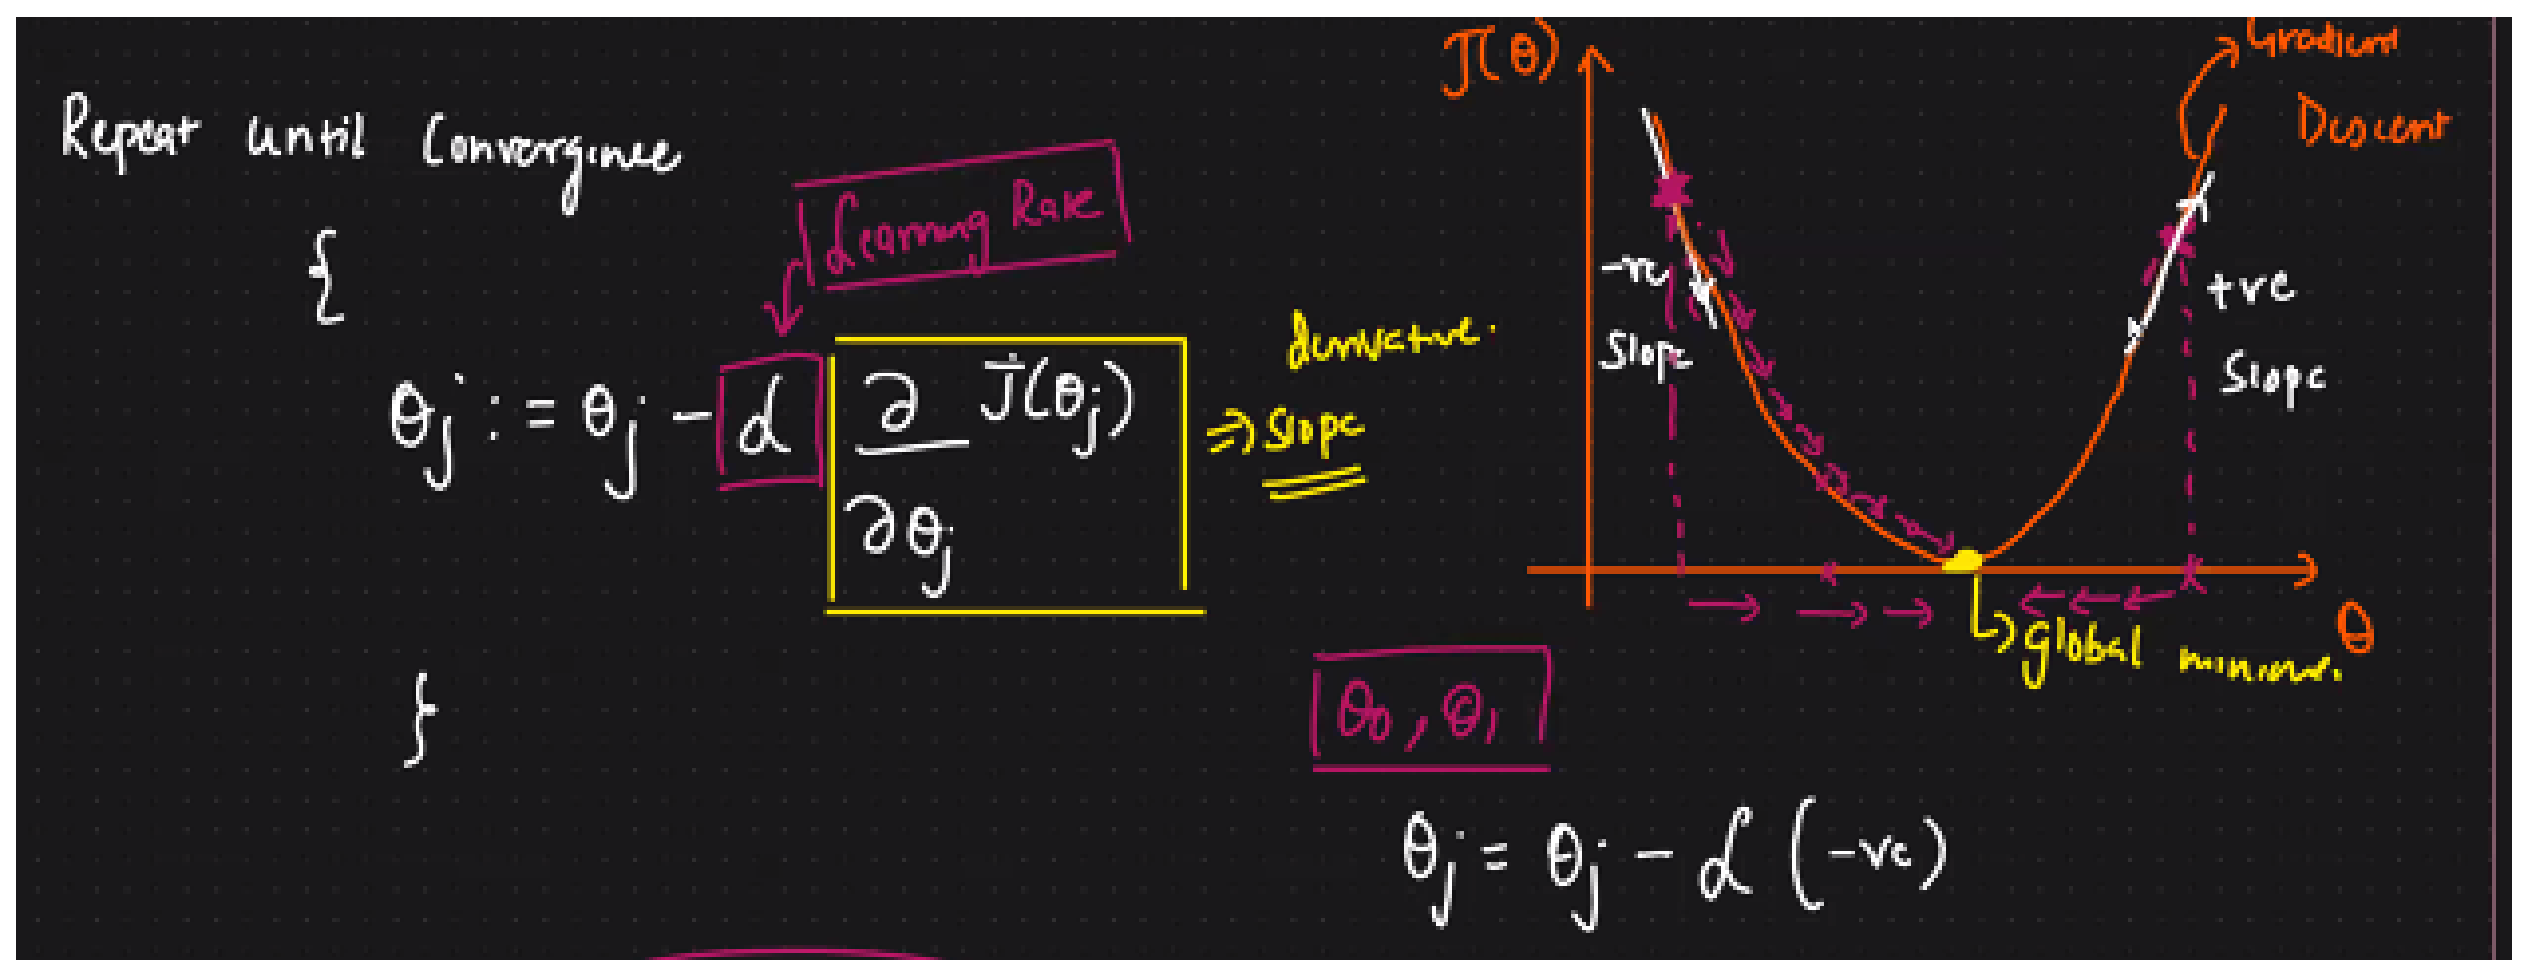 Repeat until Convergence
{
Learning Rate
θj := θj - α ∂/∂θj J(θj)
derivative.
⇒ Slope
}
J(θ)
Gradient
Descent
-ve
Slope
+ve
Slope
θ
global minima.
θ0, θ1
θj = θj - α (-ve)